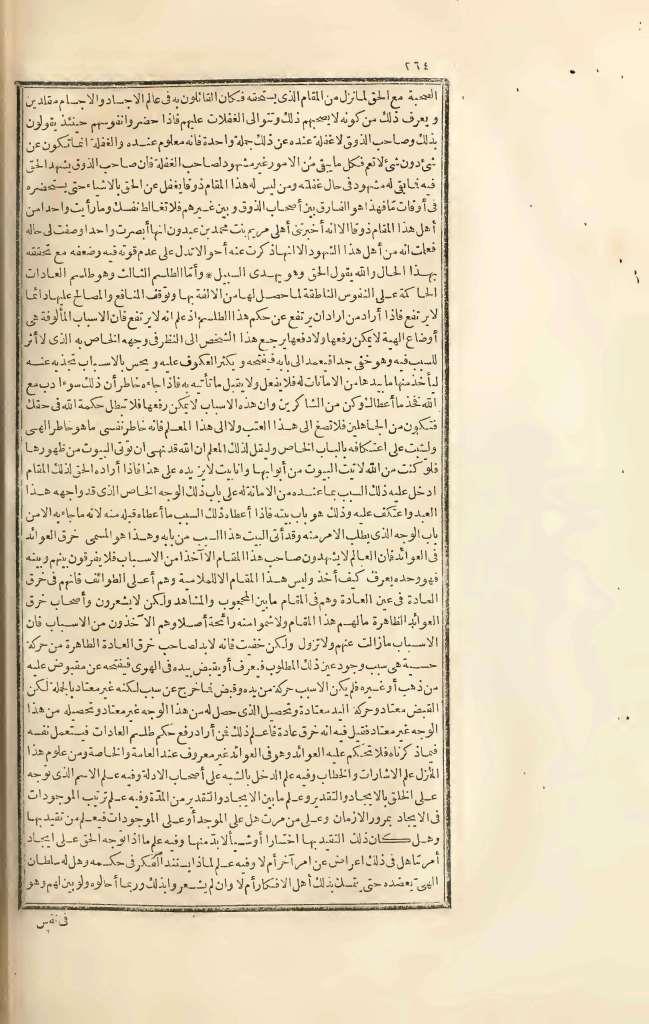 ٢٦٤
الصحبة مع الحق لما نزل من المقام الذى يستحقه فكان القائلون به فى عالم الاجساد والاجسام مقلدين
و يعرف ذلك من كونه لا يصحبهم ذلك وتتوالى الغفلات عليهم فاذا حضروا نفوسهم حينئذ يقولون
بذلك وصاحب الذوق لا غفلة عنده عن ذلك جملة واحدة فانه معلوم عنده والغفلة انما تكون عن
شئ دون شئ لا تعم فكل ما يبقى من الامور غير مشهود لصاحب الغفلة فان صاحب الذوق يشهد الحق
فيه فما بقى له مشهود فى حال غفلته ومن ليس له هذا المقام ذوقا يغفل عن الحق بالاشياء حتى يستحضره
فى أوقات مّا فهذا هو الفارق بين أصحاب الذوق و بين غيرهم فلا تغالط نفسك وما رأيت واحدا من
أهل هذا المقام ذوقا الا انه أخبرتنى أهلى مريم بنت محمد بن عبدون انها أبصرت واحدا وصفت لى حاله
فعلمت انه من أهل هذا الشهود الا انها ذكرت عنه أحوالا تدل على عدم قوته فيه وضعفه مع تحققه
بهذا الحال والله يقول الحق وهو يهدى السبيل * وأمّا الطلسم الثالث وهو طلسم العادات
الحاكمة على النفوس الناطقة لما حصل لها من الالفة بها وتوقف المنافع والمصالح عليها دائما
لا يرتفع فاذا أراد من أراد ان يرتفع عن حكم هذا الطلسم اذ علم انه لا يرتفع فان الاسباب المألوفة هى
أوضاع الهية لا يمكن رفعها ولا دفعها يرجع هذا الشخص الى النظر فى وجهه الخاص به الذى لا أثر
للسبب فيه وهو خفى جدا فيعمد الى بابه فيفتحه و يكثر العكوف عليه و يحس بالاسباب تجذبه عنه
ليأخذ منها ما بيدها من الامانات له فلا يفعل ولا يقبل ما تأتيه به فاذا جاءه خاطر أن ذلك سوء أدب مع
الله فخذ ما أعطاك وكن من الشاكرين وان هذه الاسباب لا يمكن رفعها فلا تبطل حكمة الله فى حقك
فتكون من الجاهلين فلا تصغ الى هذا العتب ولا الى هذا المعلم فانه خاطر نفسى ما هو خاطر الهى
وليثبت على اعتكافه بالباب الخاص وليقل لذلك المعلم ان الله قد نهى ان تؤتى البيوت من ظهورها
فلو كنت من الله لاتيت البيوت من أبوابها وانا بيت لا يزيده على هذا فاذا أراده الحق لذلك المقام
ادخل عليه ذلك السبب بما عنده من الامانة له على باب ذلك الوجه الخاص الذى قد واجهه هذا
العبد واعتكف عليه وذلك هو باب بيته فاذا أعطاه ذلك السبب ما أعطاه قبله منه لانه ما جاءه الا من
باب الوجه الذى يطلب الامر منه وقد أتى البيت هذا السبب من بابه وهذا هو المسمى خرق العوائد
فى العوائد فان العالم لا يشهدون صاحب هذا المقام الا آخذا من الاسباب فلا يفرقون بينهم وبينه
فهو وحده يعرف كيف أخذ وليس هذا المقام الا للملامية وهم أعلى الطوائف فانهم فى خرق
العادة فى عين العادة وهم فى المقام ما بين المحجوب والمشاهد ولكن لا يشعرون وأصحاب خرق
العوائد الظاهرة ما لهم هذا المقام ولا شموا منه رائحة أصلا وهم الآخذون من الاسباب فان
الاسباب ما زالت عنهم ولا تزول ولكن خفيت فانه لا بد لصاحب خرق العادة الظاهرة من حركة
حسية هى سبب وجود عين ذلك المطلوب فيعرف أو يقبض بيده فى الهوى فيفتحه عن مقبوض عليه
من ذهب أو غيره فلم يكن الا بسبب حركة من يده وقبض فما خرج عن سبب لكنه غير معتاد بالجملة لكن
القبض معتاد وحركة اليد معتادة وتحصيل الذى حصل له من هذا الوجه غير معتاد وتحصيله من هذا
الوجه غير معتاد فقيل فيه انه خرق عادة فاعلم ذلك فمن أراد رفع حكم طلسم العادات فيستعمل نفسه
فيما ذكرناه فلا تتحكم عليه العوائد وهو فى العوائد غير معروف عند العامة والخاصة ومن علوم هذا
المنزل علم الاشارات والخطاب وفيه علم الدخل بالشبه على أصحاب الادلة وفيه علم الاسم الذى توجه
على الخلق بالايجاد والتقدير وعلم ما بين الايجاد والتقدير من المدّة وفيه علم ترتيب الموجودات
فى الايجاد بمرور الازمان وعلى من مرت هل على الموجد أو على الموجودات فيعلم من تقيد بها
وهل كان ذلك التقيد بها اختارا أو شيأ لا بدّ منها وفيه علم ما اذا توجه الحق على ايجاد
أمر ما هل فى ذلك اعراض عن امر آخر أم لا وفيه علم لماذا يستند الفكر فى حكمه وهل له سلطان
الهىّ يعضده حتى يتمسك بذلك أهل الافكار أم لا وان لم يشعروا بذلك وربما أحالوه ولو بين لهم وهو
فى نفس